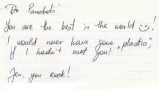 Dr Panabaki
You are the best in the world ☺.
I would never have gone "plastic"
if I hadn't met you!
Jen, you rock!